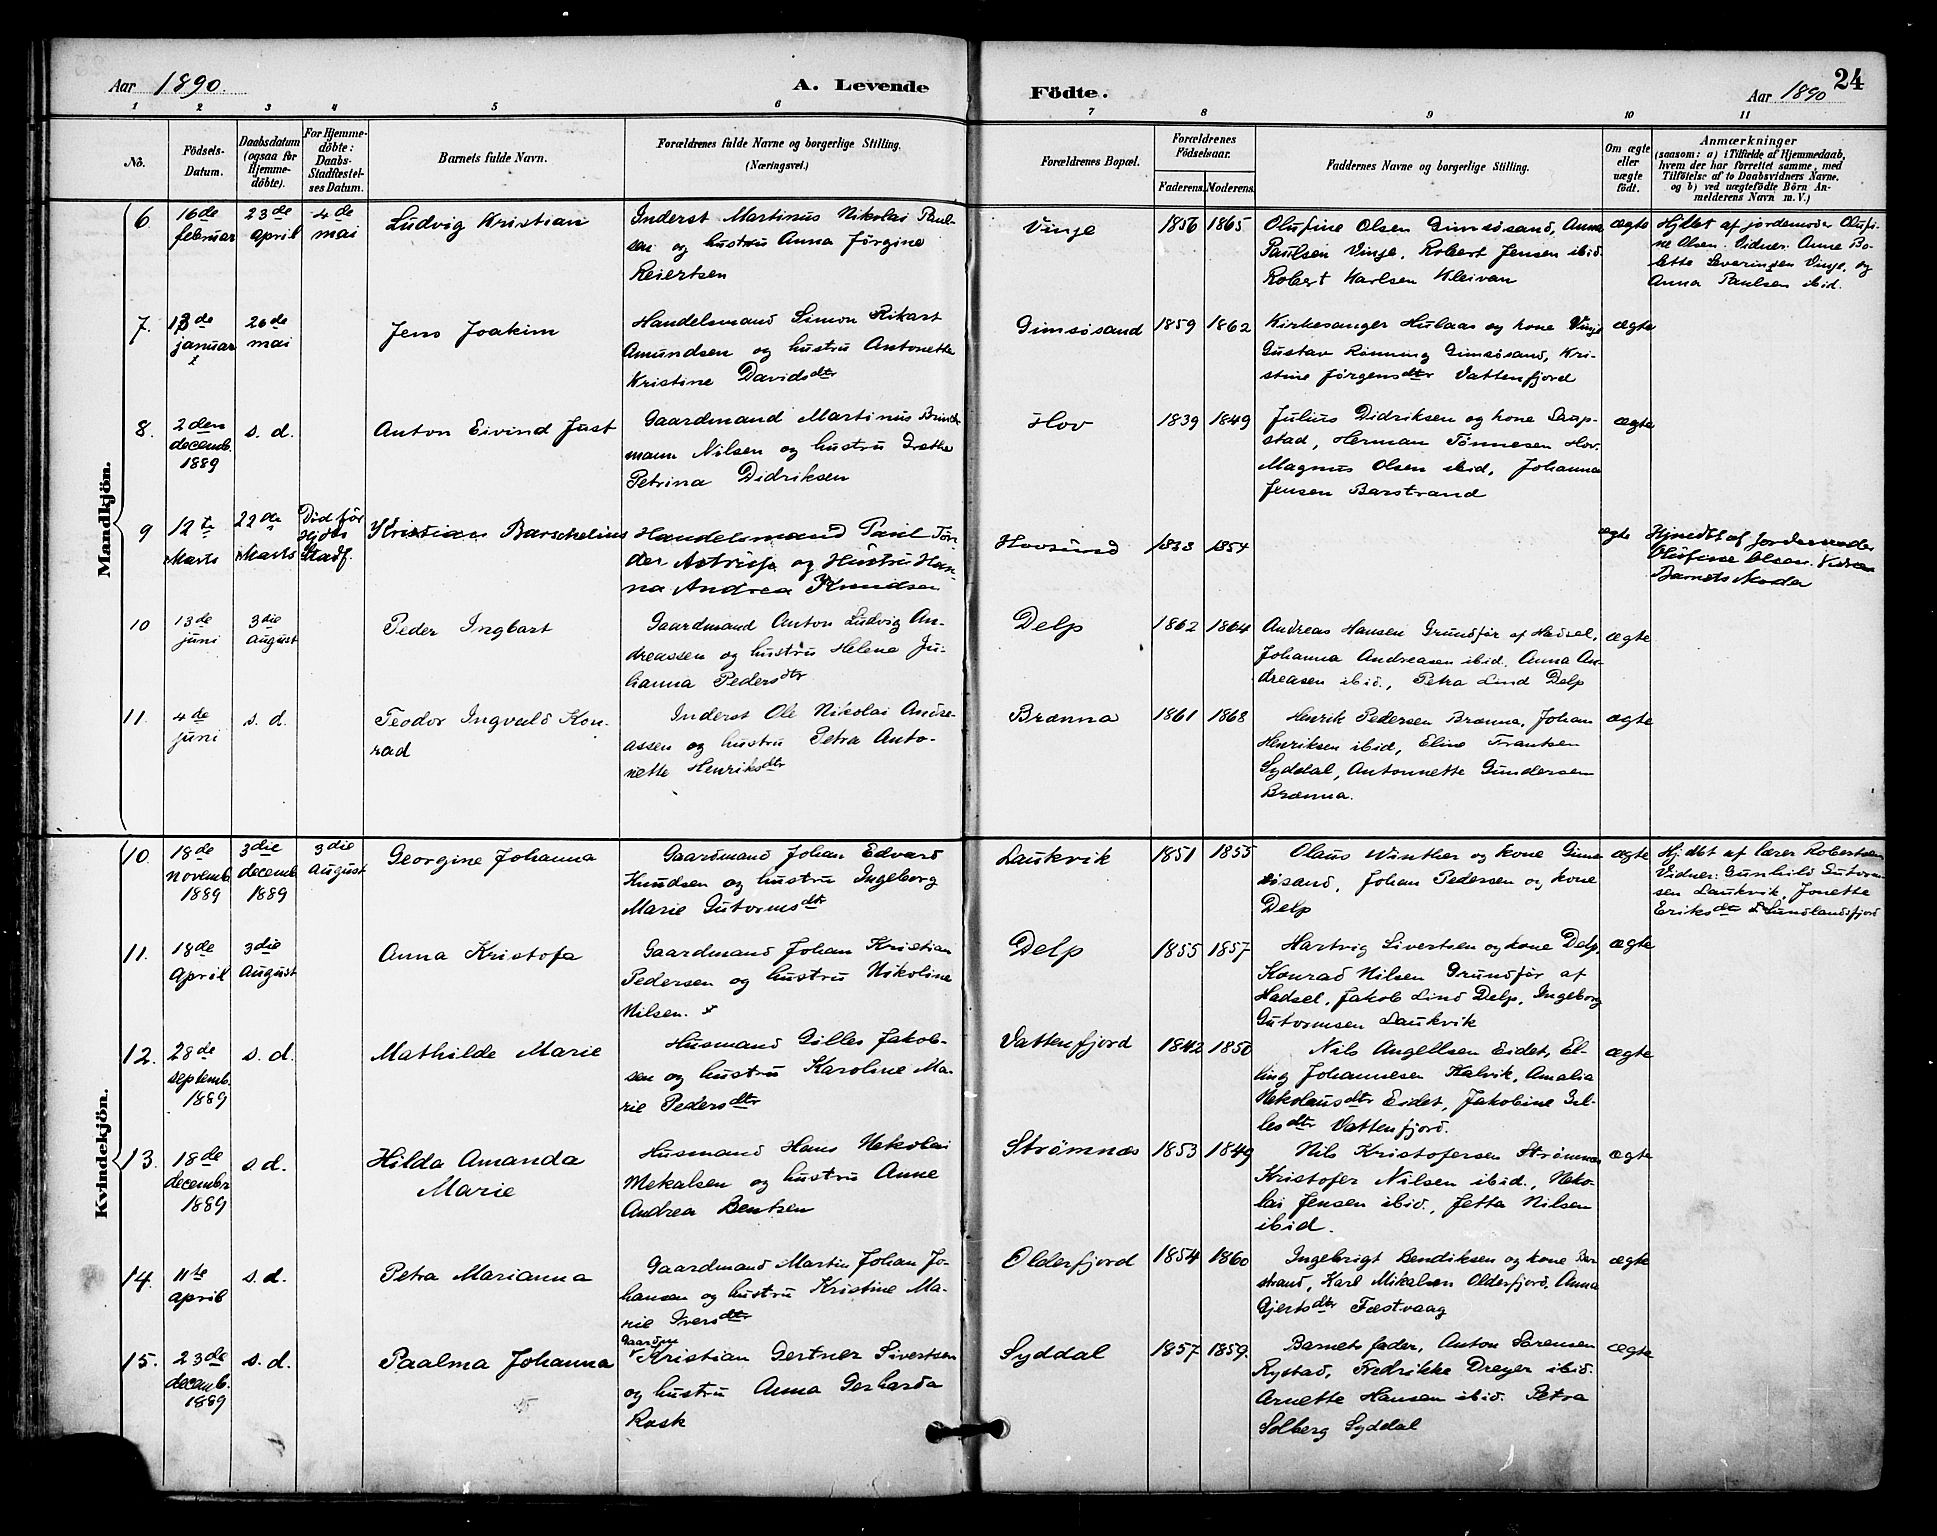 Aar 1890.
A. Levende
Födte.
Aar 1890
24
1 2 3 4 5 6 7 8 9 10 11
No.
Födsels-
Datum.
Daabsdatum
(ogsaa for
Hjemme-
döbte).
For Hjemme-
döbte:
Daabs-
Stadfæstel-
ses Datum.
Barnets fulde Navn.
Forældrenes fulde Navne og borgerlige Stilling.
(Næringsvei.)
Forældrenes Bopæl.
Forældrenes
Födselsaar.
Faderens. Moderens.
Faddernes Navne og borgerlige Stilling.
Om ægte
eller
uægte
födt.
Anmærkninger
(saasom: a) i Tilfælde af Hjemmedaab,
hvem der har forrettet samme, med
Tilföielse af to Daabsvidners Navne,
og b) ved uægtefödte Börn An-
melderens Navn m. V.)
Mandkjön.
6
16de
februar
23de
april
4de
mai
Ludvig Kristian
Inderst Martinus Nikolai Paul-
sen og hustru Anna Jørgine
Reiertsen
Vinje
1856 1865
Olufine Olsen Gimsøsand, Anna
Paulsen Vinje, Robert Jensen ibid.
Robert Karlsen Kleivan
ægte
Hjdbt af jordemoder Olufi-
ne Olsen. Vidner: Anne Bo-
lette Severinsen Vinje, og
Anna Paulsen ibid.
7.
januar
26de
mai
Jens Joakim
Handelsmand Simon Rikart
Amundsen og hustru Antonette
Kristine Davidsdtr
Gimsøsand
1859 1862
Kirkesanger Hulaas og kone Vinje
Gustav Rønning Gimsøsand, Kri-
stine Jørgensdtr Vattenfjord
ægte
8.
2den
decemb.
1889
s. d.
Anton Eivind Just
Gaardmand Martinus
mann Nilsen og hustru Grethe
Petrina Didriksen
Hov
1839 1849
Julius Didriksen og kone Saup-
stad, Herman Tønnesen Hov,
Magnus Olsen ibid, Johanna
Jensen Barstrand
ægte
9
12te
Marts
22de
Marts
Död för
Stadf.
Kristian Barschelius
Handelsmand Paul Tøn-
der Astrup og Hustru Han-
na Andrea Knudsen
Hovsund
1833 1854
ægte
Hjmdbt af Jordemoder
Olufine Olsen.
Barnets Moder
10
13de
juni
3die
august
Peder Ingbart
Gaardmand Anton Ludvig An-
dreassen og hustru Helene Ju-
hanna Pedersdtr
Delp
1862 1864
Andreas Hansen Grundfør af Hadsel,
Johanna Andreasen ibid. Anna An-
dreasen ibid., Petra Lind Delp
ægte
11.
4de
juni
s. d.
Teodor Ingvald Kon-
rad
Inderst Ole Nikolai Andre-
assen og hustru Petra Anto-
nette Henriksdtr
Brenna
1861 1868
Henrik Pedersen Brenna, Johan
Henriksen ibid, Eline Frantsen
Syddal, Antonnette Gundersen
Brenna.
ægte
Kvindekjön.
10.
18de
novemb.
1889
3die
decemb.
1889
3die
august
Georgine Johanna
Gaardmand Johan Edvard
Knudsen og hustru Ingeborg
Marie Gutormsdtr
Laukvik
1851 1855
Olaus Winther og kone Gim-
søsand, Johan Pedersen og kone
Delp
ægte
Hjdbt af lærer Robertsen
Vidner: Gunhild Gutorm-
sen Laukvik, Jonette
Eriksdtr Sundlandsfjord
11.
18de
april
3die
august
Anna Kristofa
Gaardmand Johan Kristian
Pedersen og hustru Nikoline
Nilsen.
Delp
1855 1857
Hartvig Sivertsen og kone Delp,
Konrad Nilsen Grundfør af
Hadsel, Jakob Lind Delp, Ingeborg
Gutormsen Laukvik
ægte
12.
28de
septemb.
1889
s. d.
Mathilde Marie
Husmand Gilles Jakob-
sen og hustru Karoline Ma-
rie Pedersdtr
Vattenfjord
1842 1850
Nils Angellsen Eidet, El-
ling Johannesen Kalvik, Amalia
Nekolausdtr Eidet, Jakobine Gil-
lesdtr Vattenfjord.
ægte
13.
18de
decembr
1889
s. d.
Hilda Amanda
Marie
Husmand Hans Nekolai
Mekalsen og hustru Anne
Andrea Bentsen
Strømnæs
1853 1849
Nils Kristofersen Strømnæs
Kristofer Nilsen ibid., Neko-
lai Jensen ibid., Jetta Nilsen
ibid.
ægte
14.
11te
april
s. d.
Petra Marianna
Gaardmand Martin Johan Jo-
hansen og hustru Kristine Ma-
rie Iversdtr
Olderfjord
1854 1860
Ingebrigt Bendiksen og kone Bar-
strand, Karl Mikalsen Olderfjord, Anna
Gjertsdtr Festvaag
ægte
15.
23de
decemb.
1889
s. d.
Paalma Johanna
Gaardm
Kristian Gertner Sivertsen
og hustru Anna Gerharda
Rask
Syddal
1857 1859.
Barnets fader, Anton Sørensen
Rystad, Fredrikke Dreyer ibid.
Arnette Hansen ibid. Petra
Solberg Syddal
ægte